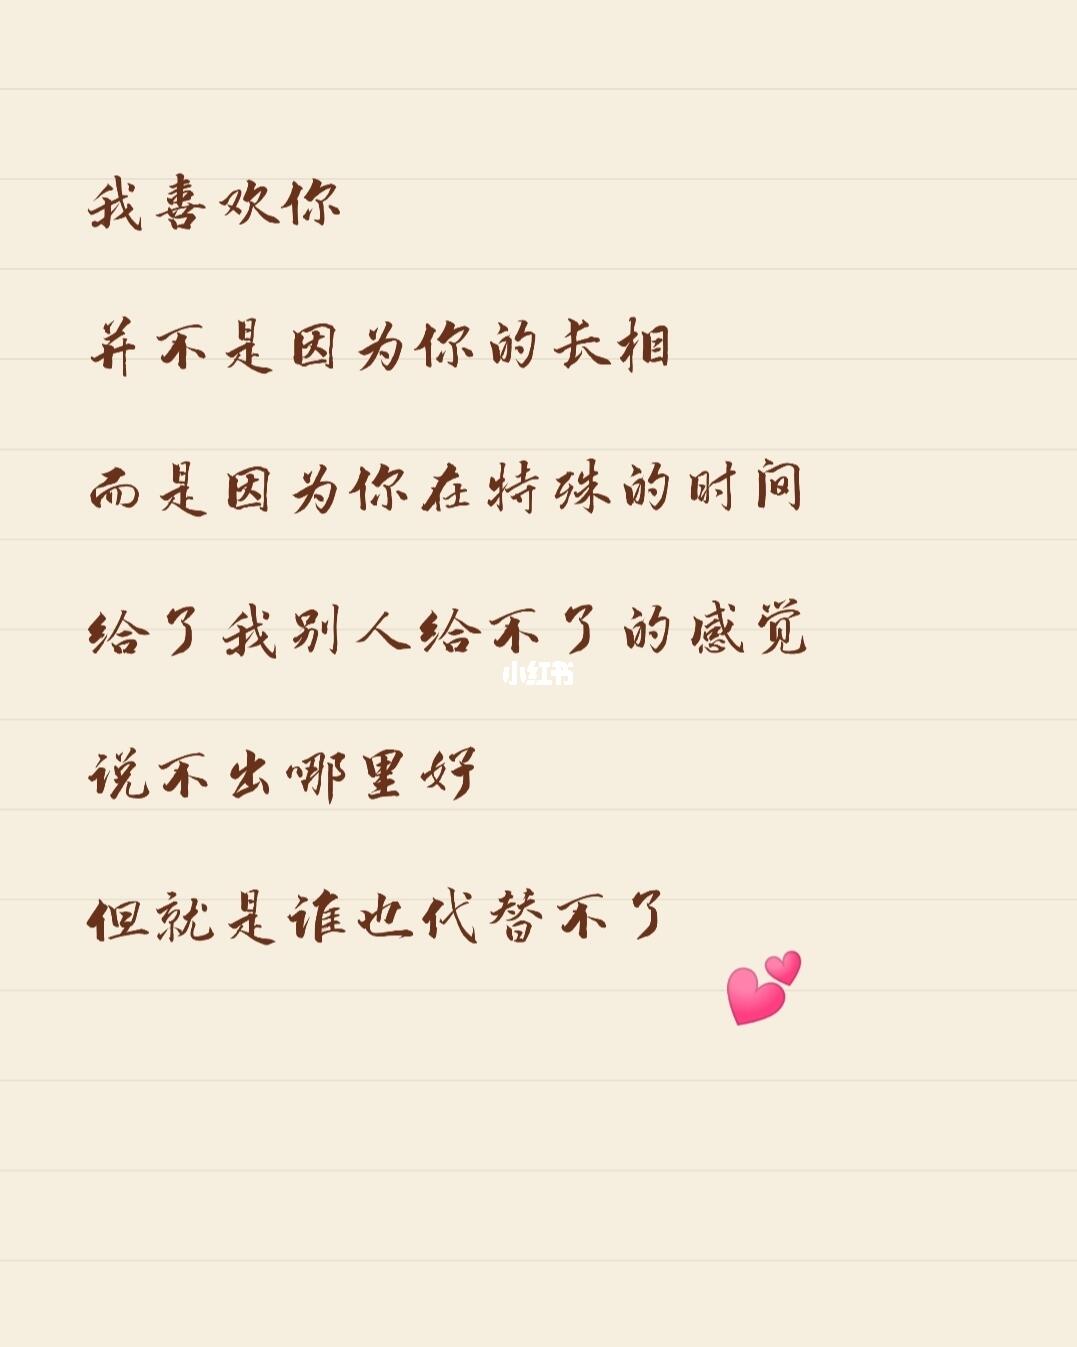 我喜欢你
并不是因为你的长相
而是因为你在特殊的时间
给了我别人给不了的感觉
小红书
说不出哪里好
但就是谁也代替不了